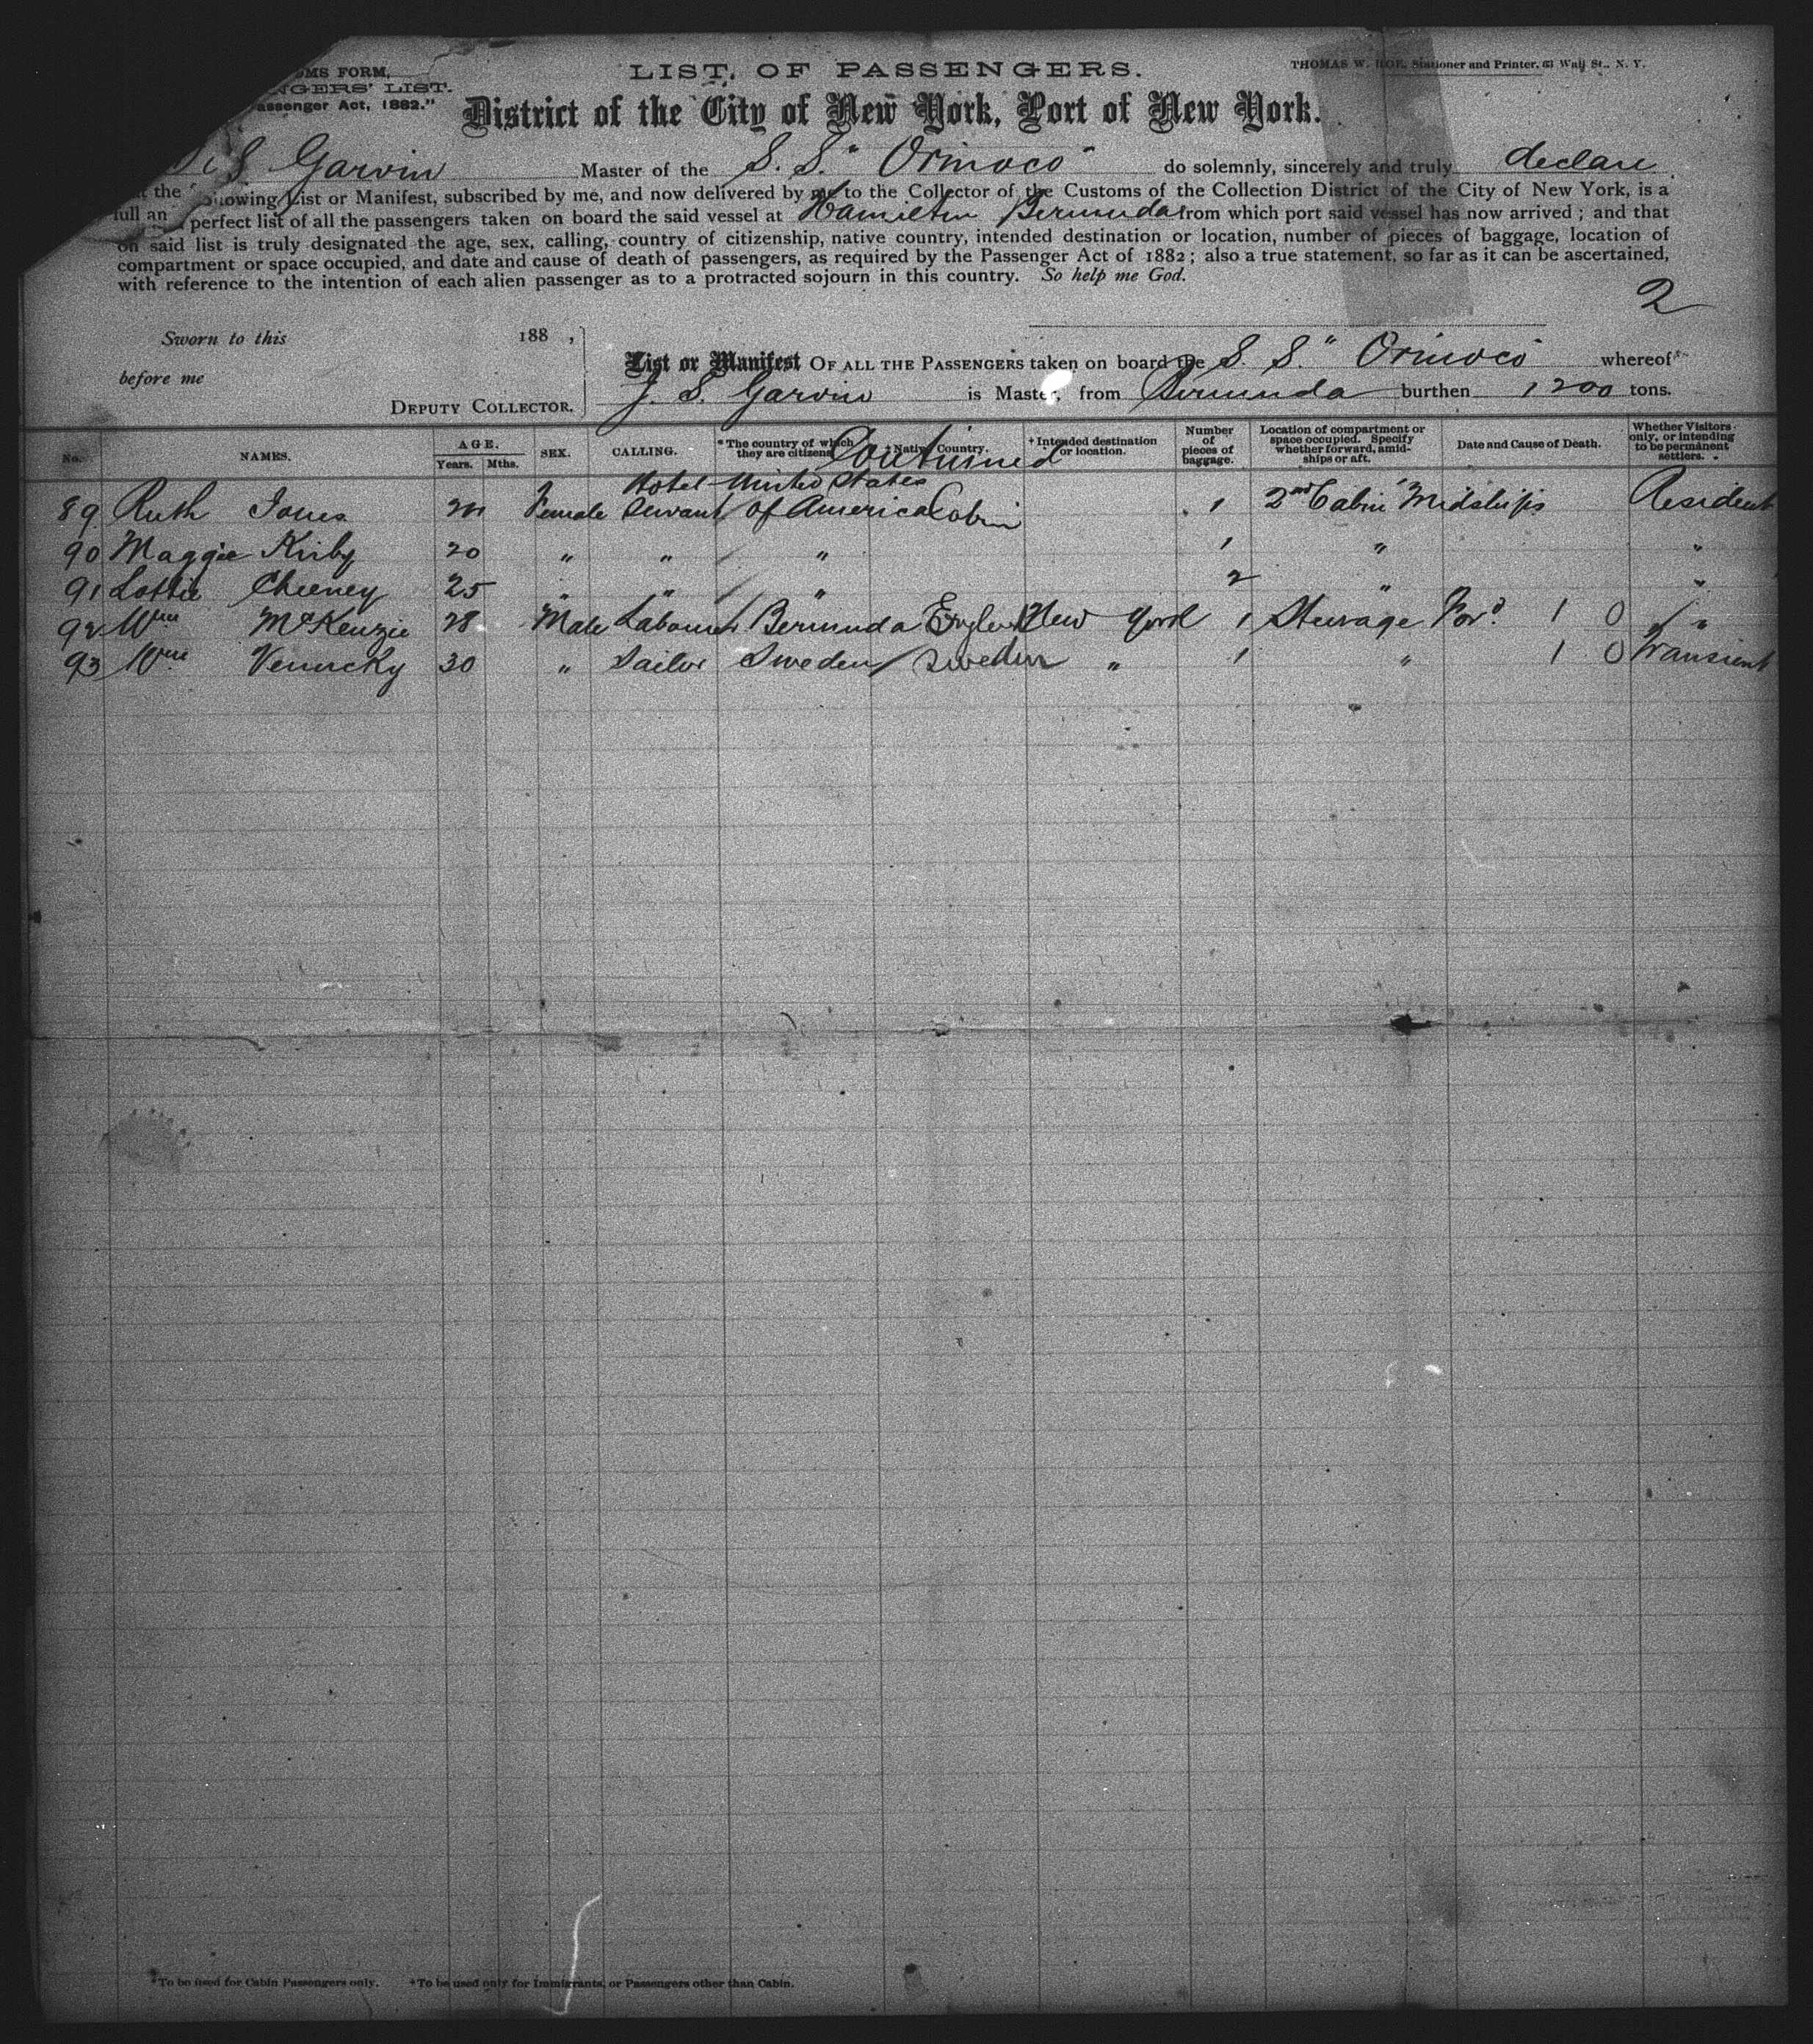 OMS FORM,
NGERS' LIST.
assenger Act, 1882."
LIST OF PASSENGERS.
THOMAS W. ROE, Stationer and Printer, 63 Wall St., N. Y.
District of the City of New York, Port of New York.
S Garvin Master of the S. S. "Orinoco" do solemnly, sincerely and truly declare
the following List or Manifest, subscribed by me, and now delivered by me to the Collector of the Customs of the Collection District of the City of New York, is a
full an perfect list of all the passengers taken on board the said vessel at Hamilton Bermuda from which port said vessel has now arrived ; and that
on said list is truly designated the age, sex, calling, country of citizenship, native country, intended destination or location, number of pieces of baggage, location of
compartment or space occupied, and date and cause of death of passengers, as required by the Passenger Act of 1882 ; also a true statement, so far as it can be ascertained,
with reference to the intention of each alien passenger as to a protracted sojourn in this country. So help me God.
2
Sworn to this 188 ,
before me
DEPUTY COLLECTOR.
List or Manifest OF ALL THE PASSENGERS taken on board the S. S. "Orinoco" whereof
J. S. Garvin is Master, from Bermuda burthen 1200 tons.
No. NAMES. AGE. Years. Mths. SEX. CALLING. *The country of which they are citizens. †Native Country. †Intended destination or location. Number of pieces of baggage. Location of compartment or space occupied. Specify whether forward, amidships or aft. Date and Cause of Death. Whether Visitors only, or intending to be permanent settlers.
Continued
89 Ruth Jones Female Hotel Servant United States of America Cabin 1 2nd Cabin Midships Resident
90 Maggie Kirby 20 " " " 1 " "
91 Lottie Cheeney 25 " " " 2 " "
92 Wm McKenzie 28 Male Labourer Bermuda England New York 1 Steurage For'd 1 0 "
93 Wm Venucky 30 " Sailor Sweden Sweden " 1 " 1 0 Transient
*To be used for Cabin Passengers only. †To be used only for Immigrants, or Passengers other than Cabin.